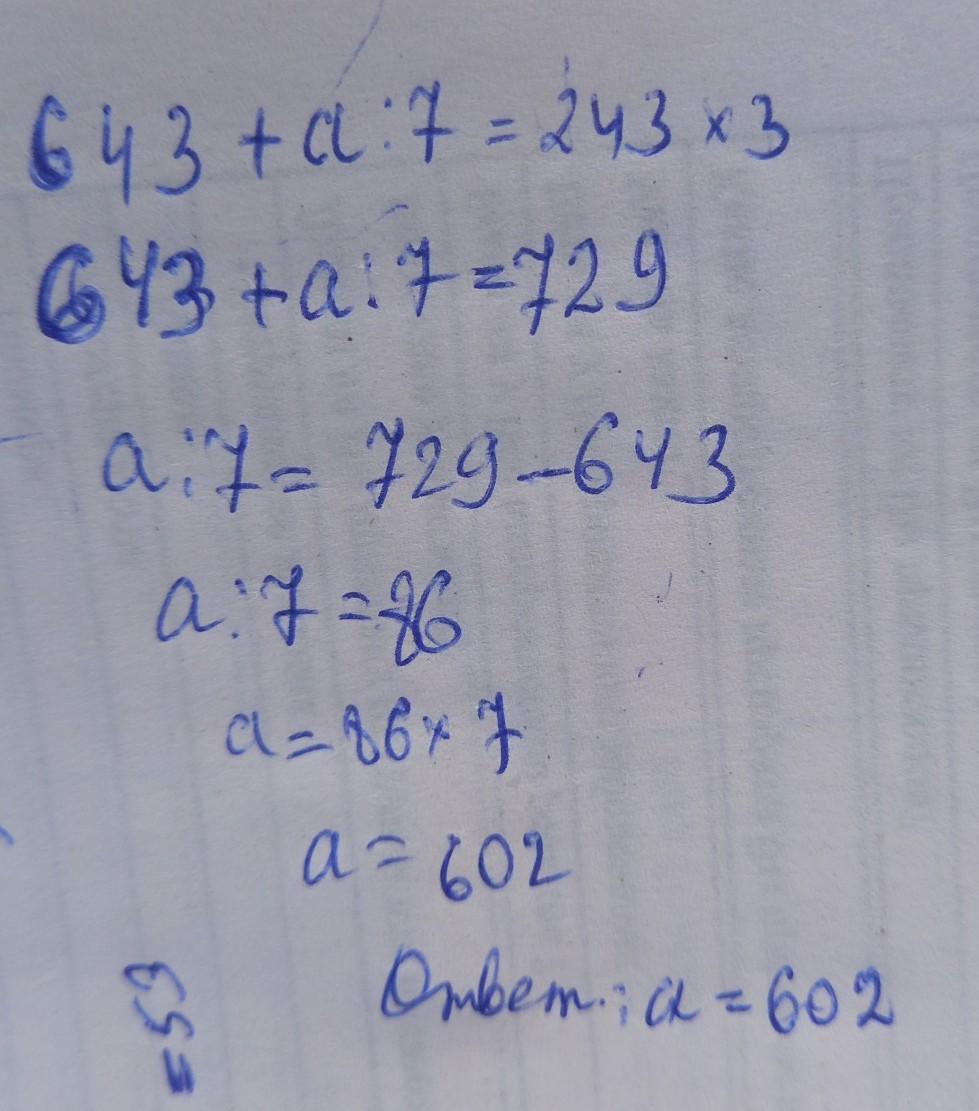 643 + a : 7 = 243 × 3
643 + a : 7 = 729
a : 7 = 729 - 643
a : 7 = 86
a = 86 × 7
a = 602
Ответ: a = 602
= 53